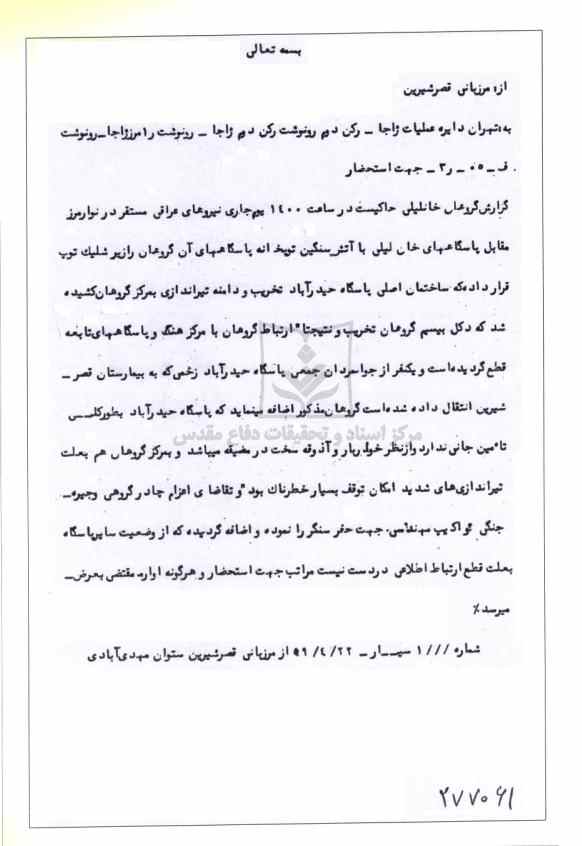 بسمه تعالی
از: مرزبانی قصرشیرین
به: تهران دایره عملیات ژاجا ـ رکن دوم رونوشت رکن دوم ژاجا ـ رونوشت ر۱مرزژاجا ـ رونوشت
ف ـ ۰۵ ـ ر۳ ـ جهت استحضار
گزارش گروهان خانلیلی حاکیست در ساعت ۱۴۰۰ یوم جاری نیروهای عراقی مستقر در نوار مرز
مقابل پاسگاههای خان لیلی با آتش سنگین توپخانه پاسگاههای آن گروهان را زیر شلیك توپ
قرار داده که ساختمان اصلی پاسگاه حیدرآباد تخریب و دامنه تیراندازی بمرکز گروهان کشیده
شد که دکل بیسیم گروهان تخریب و نتیجتا" ارتباط گروهان با مرکز هنگ و پاسگاههای تابعه
قطع گردیده است و یکنفر از جوانمردان جمعی پاسگاه حیدرآباد زخمی که به بیمارستان قصر ـ
شیرین انتقال داده شده است گروهان مذکور اضافه مینماید که پاسگاه حیدرآباد بطور کلی
تاٴمین جانی ندارد و از نظر خواربار و آذوقه سخت در مضیقه میباشد و بمرکز گروهان هم بعلت
تیراندازی‌های شدید امکان توقف بسیار خطرناك بوده و تقاضای اعزام چادر گروهی و جیره ـ
جنگی و اکیپ مهندسی جهت حفر سنگر را نموده و اضافه گردیده که از وضعیت سایر پاسگاه
بعلت قطع ارتباط اطلاعی در دست نیست مراتب جهت استحضار و هرگونه اوامر مقتضی بعرض ـ
میرسد٪
شماره ///۱ سیـار ـ ۵۹/۴/۲۲ از مرزبانی قصرشیرین ستوان مهدی‌آبادی
مرکز اسناد و تحقیقات دفاع مقدس
۲۷۷۰۶۱